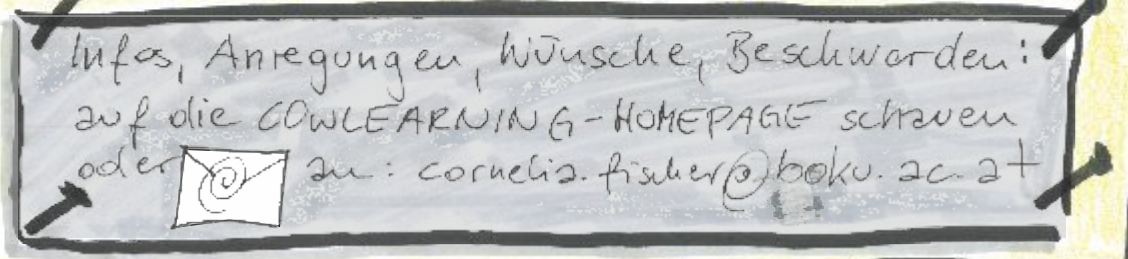 Infos, Anregungen, Wünsche, Beschwerden:
auf die COWLEARNING-HOMEPAGE schauen
oder @ an: cornelia.fischer@boku.ac.at